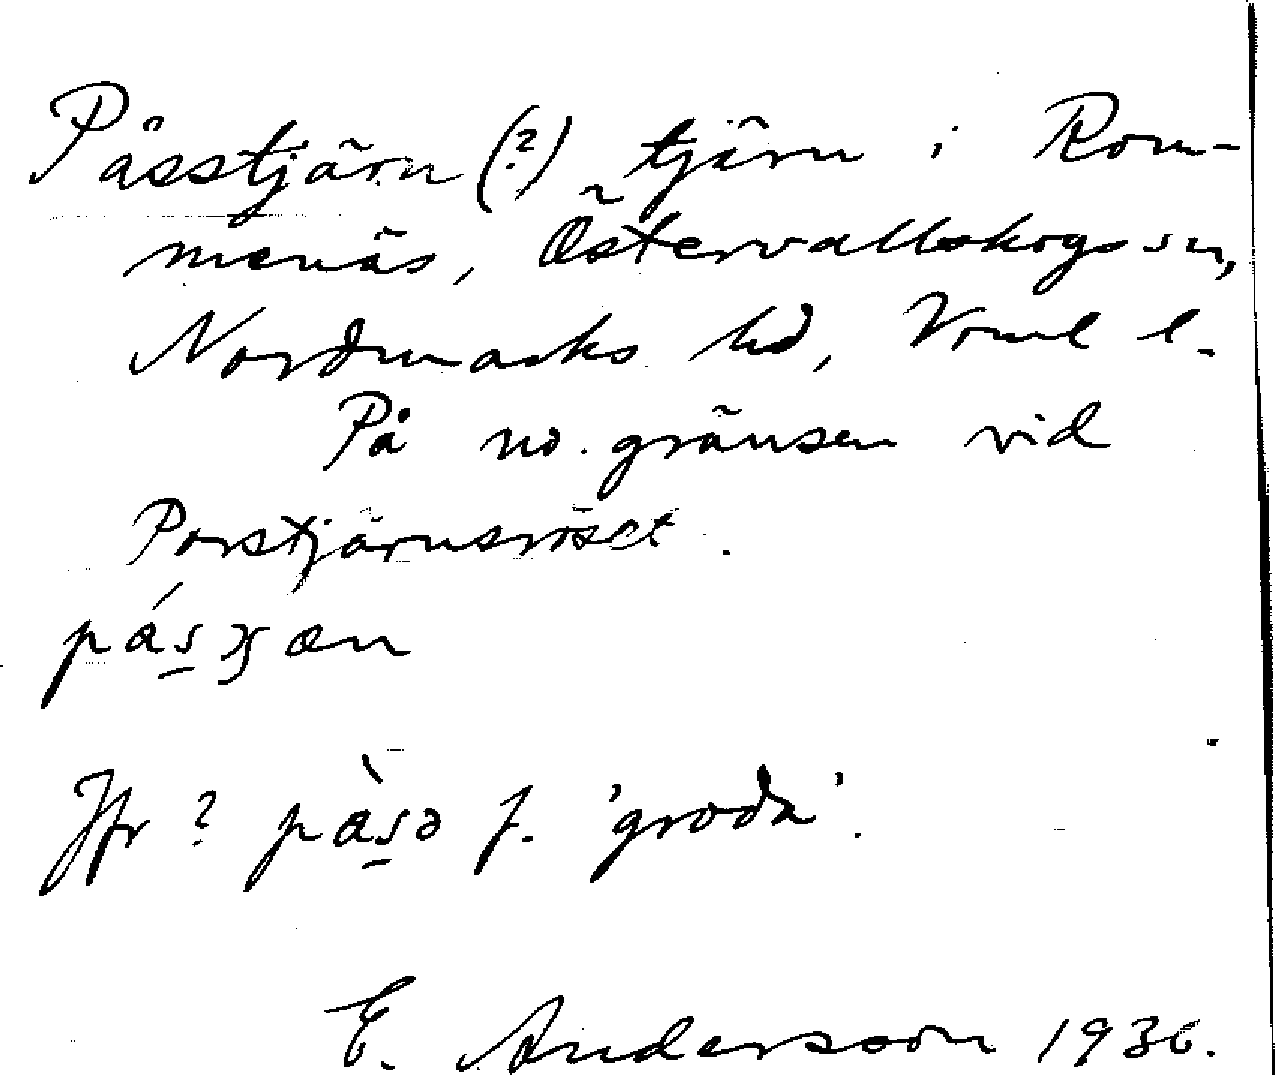 Påsstjärn (?) tjärn i Rom-
menäs, Östervallskogs sn,
Nordmarks hd, Vrml l.
På no. gränsen vid
Porstjärnsröset.
Jfr ? f. 'groda'.
E. Andersson 1936.